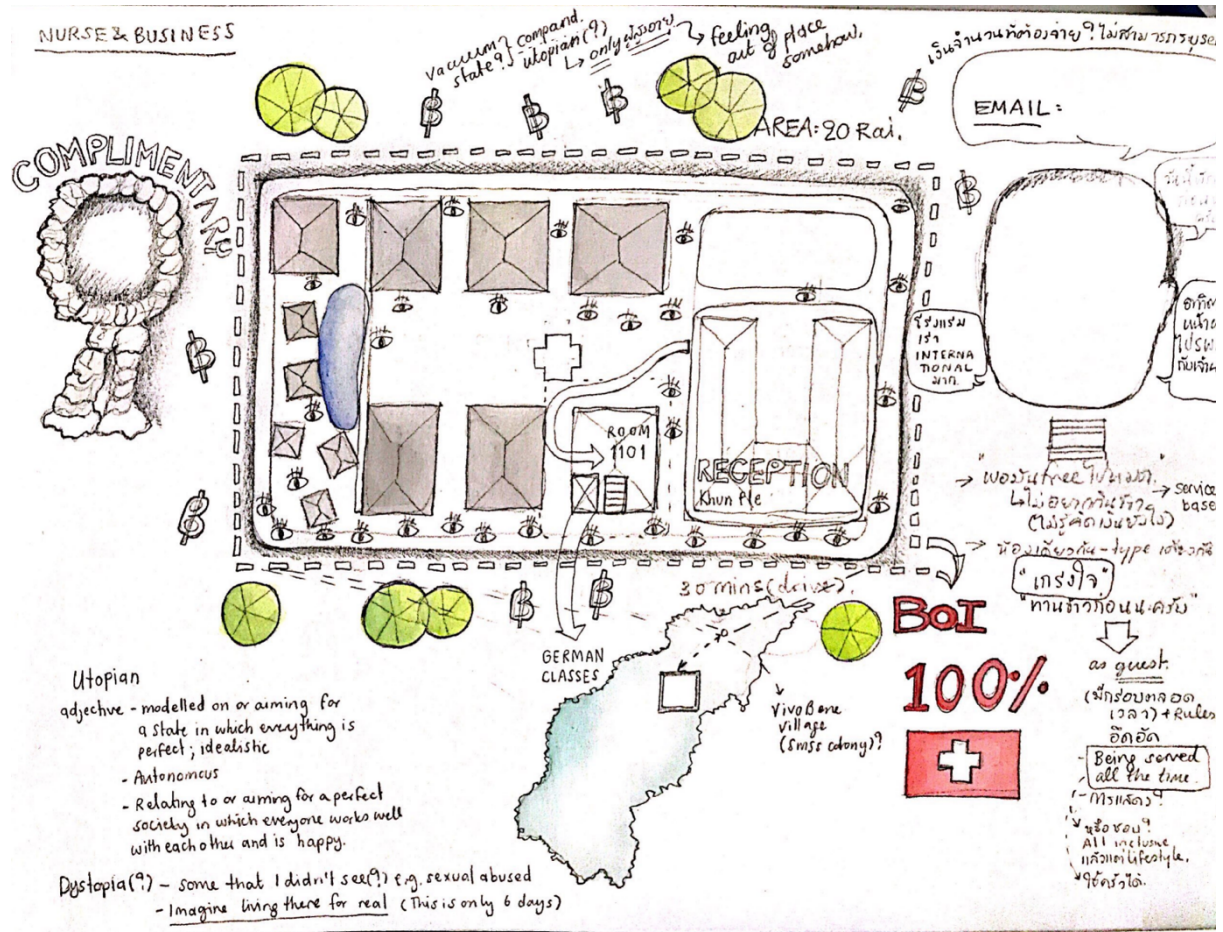 NURSE & BUSINESS
vacuum
state?
compound.
utopian(?)
↳ only
→ feeling
out of place
somehow.
AREA: 20 Rai.
EMAIL:
COMPLIMENTARY
฿
฿
฿
฿
฿
฿
฿
฿
฿
โรงแรม
เรา
INTERNA
TIONAL
มาก.
ROOM
1101
RECEPTION
Khun Ple
→ service
base
"เกรงใจ"
"ทานข้าวก่อนนะครับ"
as guest.
(มีกรอบตลอด
เวลา) + Rules
อึดอัด
- Being served
all the time.
- การแสดง?
หรือชอบ?
All inclusive
แล้วแต่ lifestyle.
ใช้ครัวได้.
30 mins (drive).
BOI
100%
GERMAN
CLASSES
VivoBene
village
(Swiss colony)?
Utopian
adjective - modelled on or aiming for
a state in which everything is
perfect; idealistic
- Autonomous
- Relating to or aiming for a perfect
society in which everyone works well
with each other and is happy.
Dystopia(?) - some that I didn't see(?) e.g. sexual abused
- Imagine living there for real (This is only 6 days)